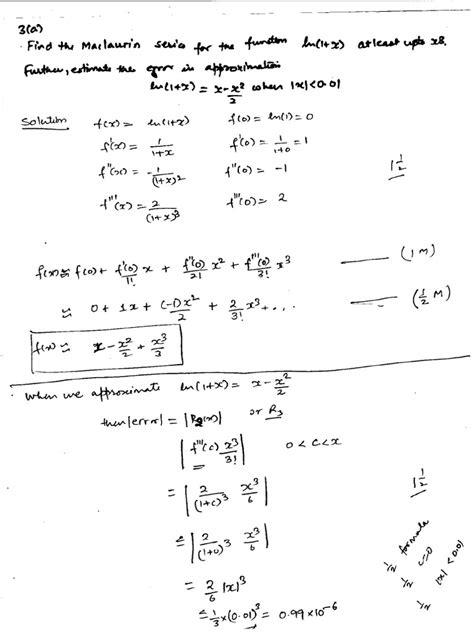 3(a)
Find the Maclaurin series for the function ln(1+x) atleast upto x3.
Further, estimate the error in approximation
ln(1+x) = x - x²/2 when |x|<0.01
Solution
f(x) = ln(1+x)    f(0) = ln(1) = 0
f'(x) = 1/(1+x)    f'(0) = 1/(1+0) = 1
f''(x) = -1/(1+x)²    f''(0) = -1    1 1/2
f'''(x) = 2/(1+x)³    f'''(0) = 2
f(x) ≈ f(0) + f'(0)/1! x + f''(0)/2! x² + f'''(0)/3! x³ —— (1M)
≈ 0 + 1x + (-1)x²/2 + 2/3! x³ + ... —— (1/2 M)
f(x) ≈ x - x²/2 + x³/3
When we approximate ln(1+x) = x - x²/2
then |error| = |R2(x)| or R3
|f'''(c) x³/3!|    0 < c < x
= |2/(1+c)³ x³/6|    1 1/2
≤ |2/(1+0)³ x³/6|
= 2/6 |x|³
≤ 1/3 × (0.01)³ = 0.99×10⁻⁶
1/2 formula
1/2 c=0
1/2 |x|<0.01